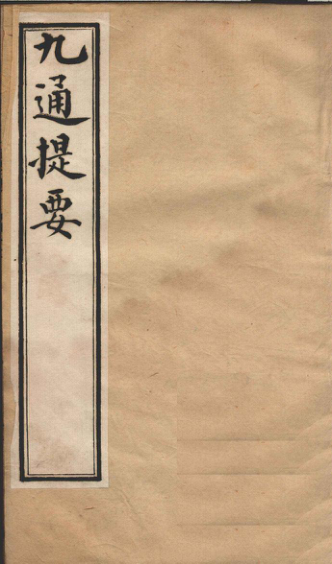 九通提要